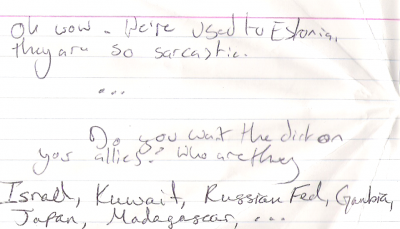 Oh wow. We're used to Estonia,
they are so sarcastic.
...
Do you want the dirt on
yos allies? Who are they
Israel, Kuwait, Russian Fed, Gambia,
Japan, Madagascar, ...